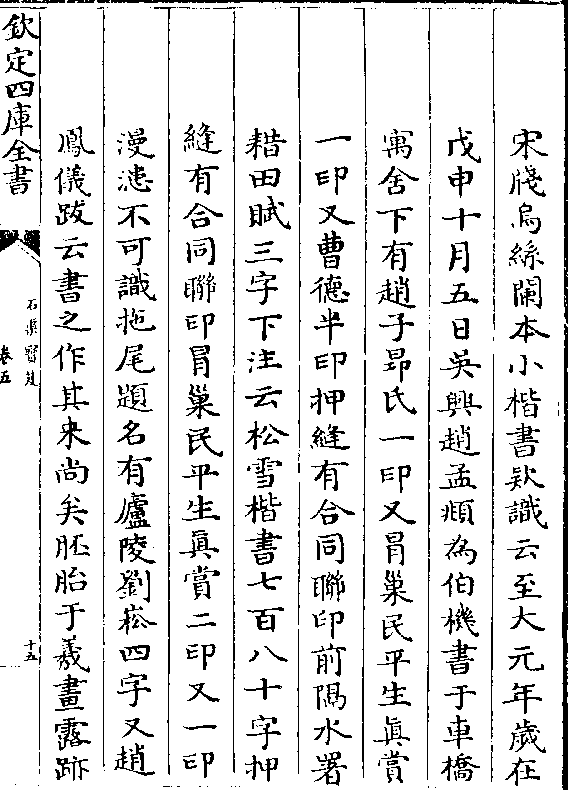 宋牋烏絲闌本小楷書款識云至大元年歲在
戊申十月五日吳興趙孟頫為伯機書于車橋
寓舍下有趙子昂氏一印又冐巢民平生真賞
一印又曹德半印押縫有合同聯印前隔水署
耤田賦三字下注云松雪楷書七百八十字押
縫有合同聯印冐巢民平生真賞二印又一印
漫漶不可識拖尾題名有廬陵劉崧四字又趙
鳳儀跋云書之作其来尚矣胚胎于羲畫露跡
欽定四庫全書
石渠寳笈
卷五
十五